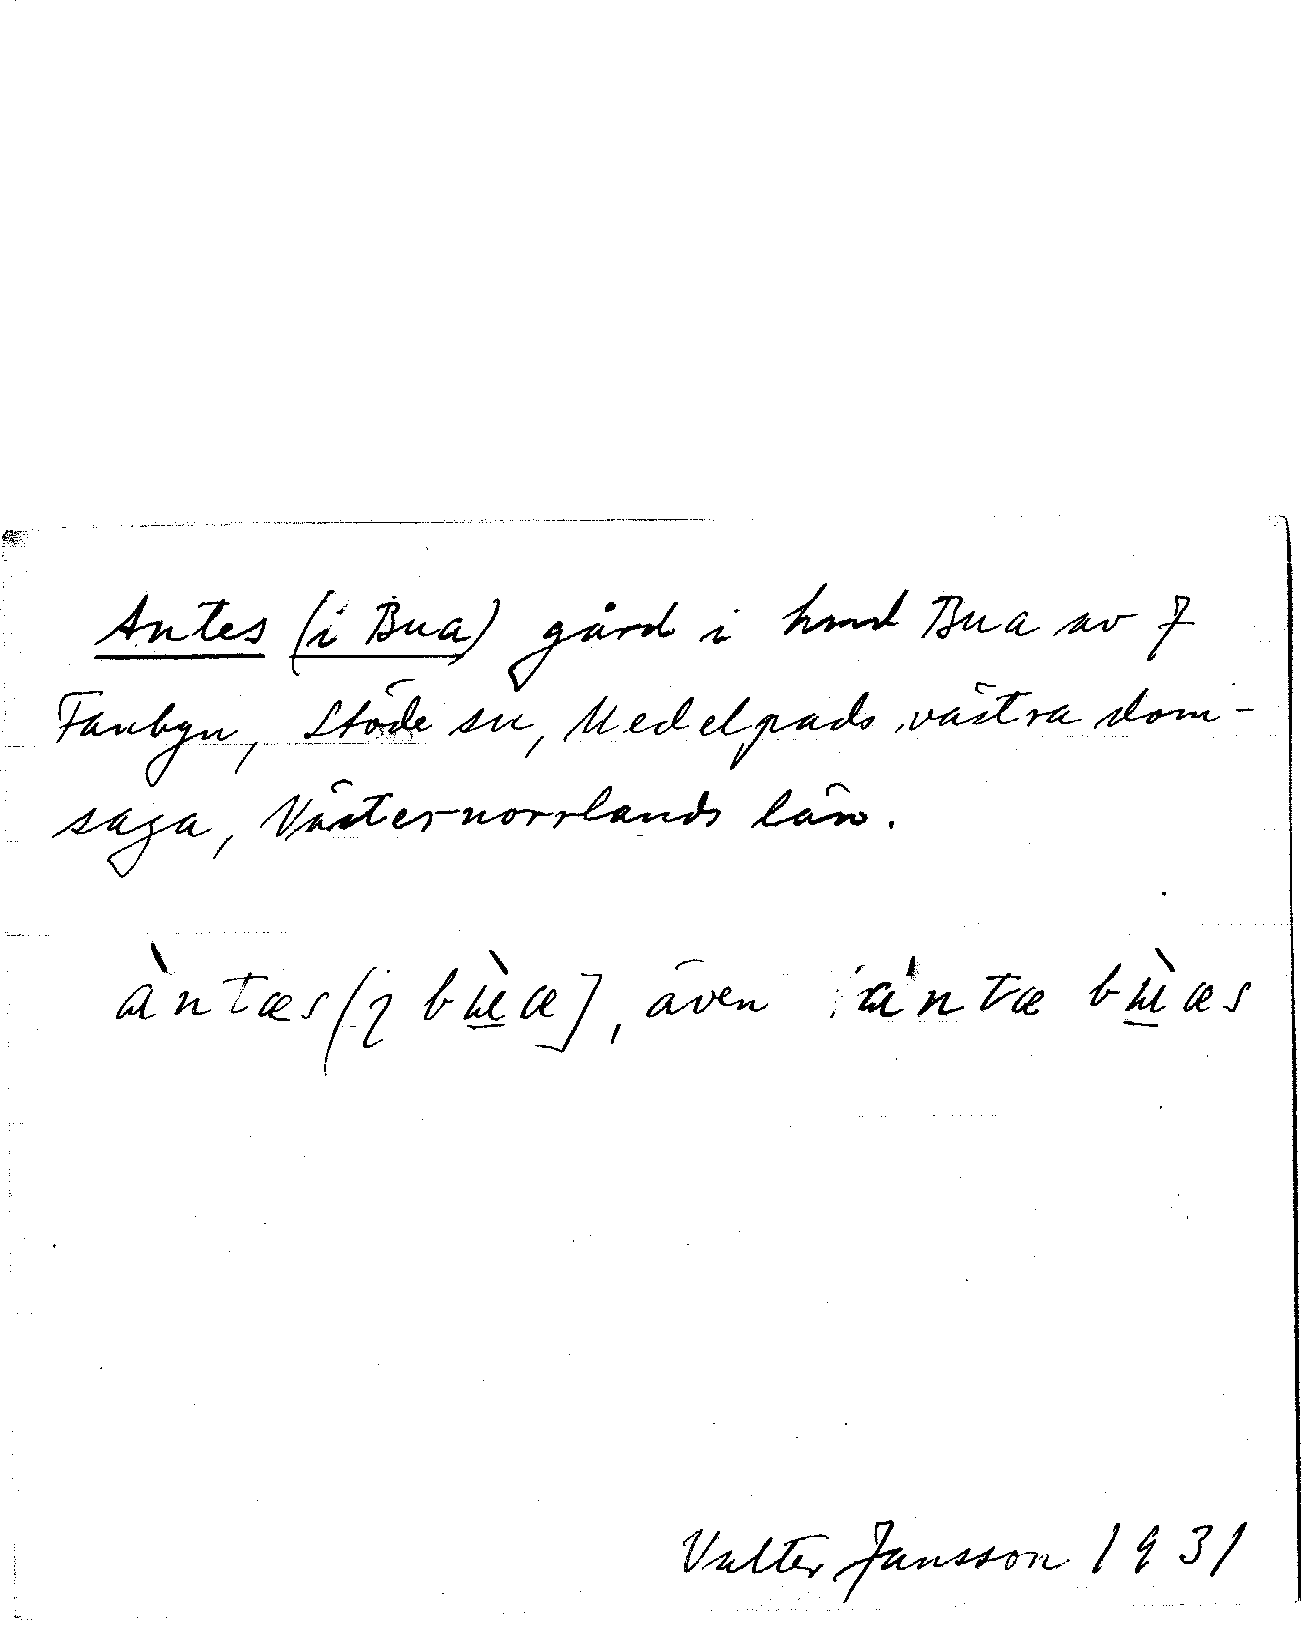 Antes (i Bua) gård i hmd Bua av 7
Fanbyn, Stöde sn, Medelpads västra dom-
saga, Västernorrlands län.
àntæs (i bù̲æ), även ántæ bù̲æs
Valter Jansson 1931